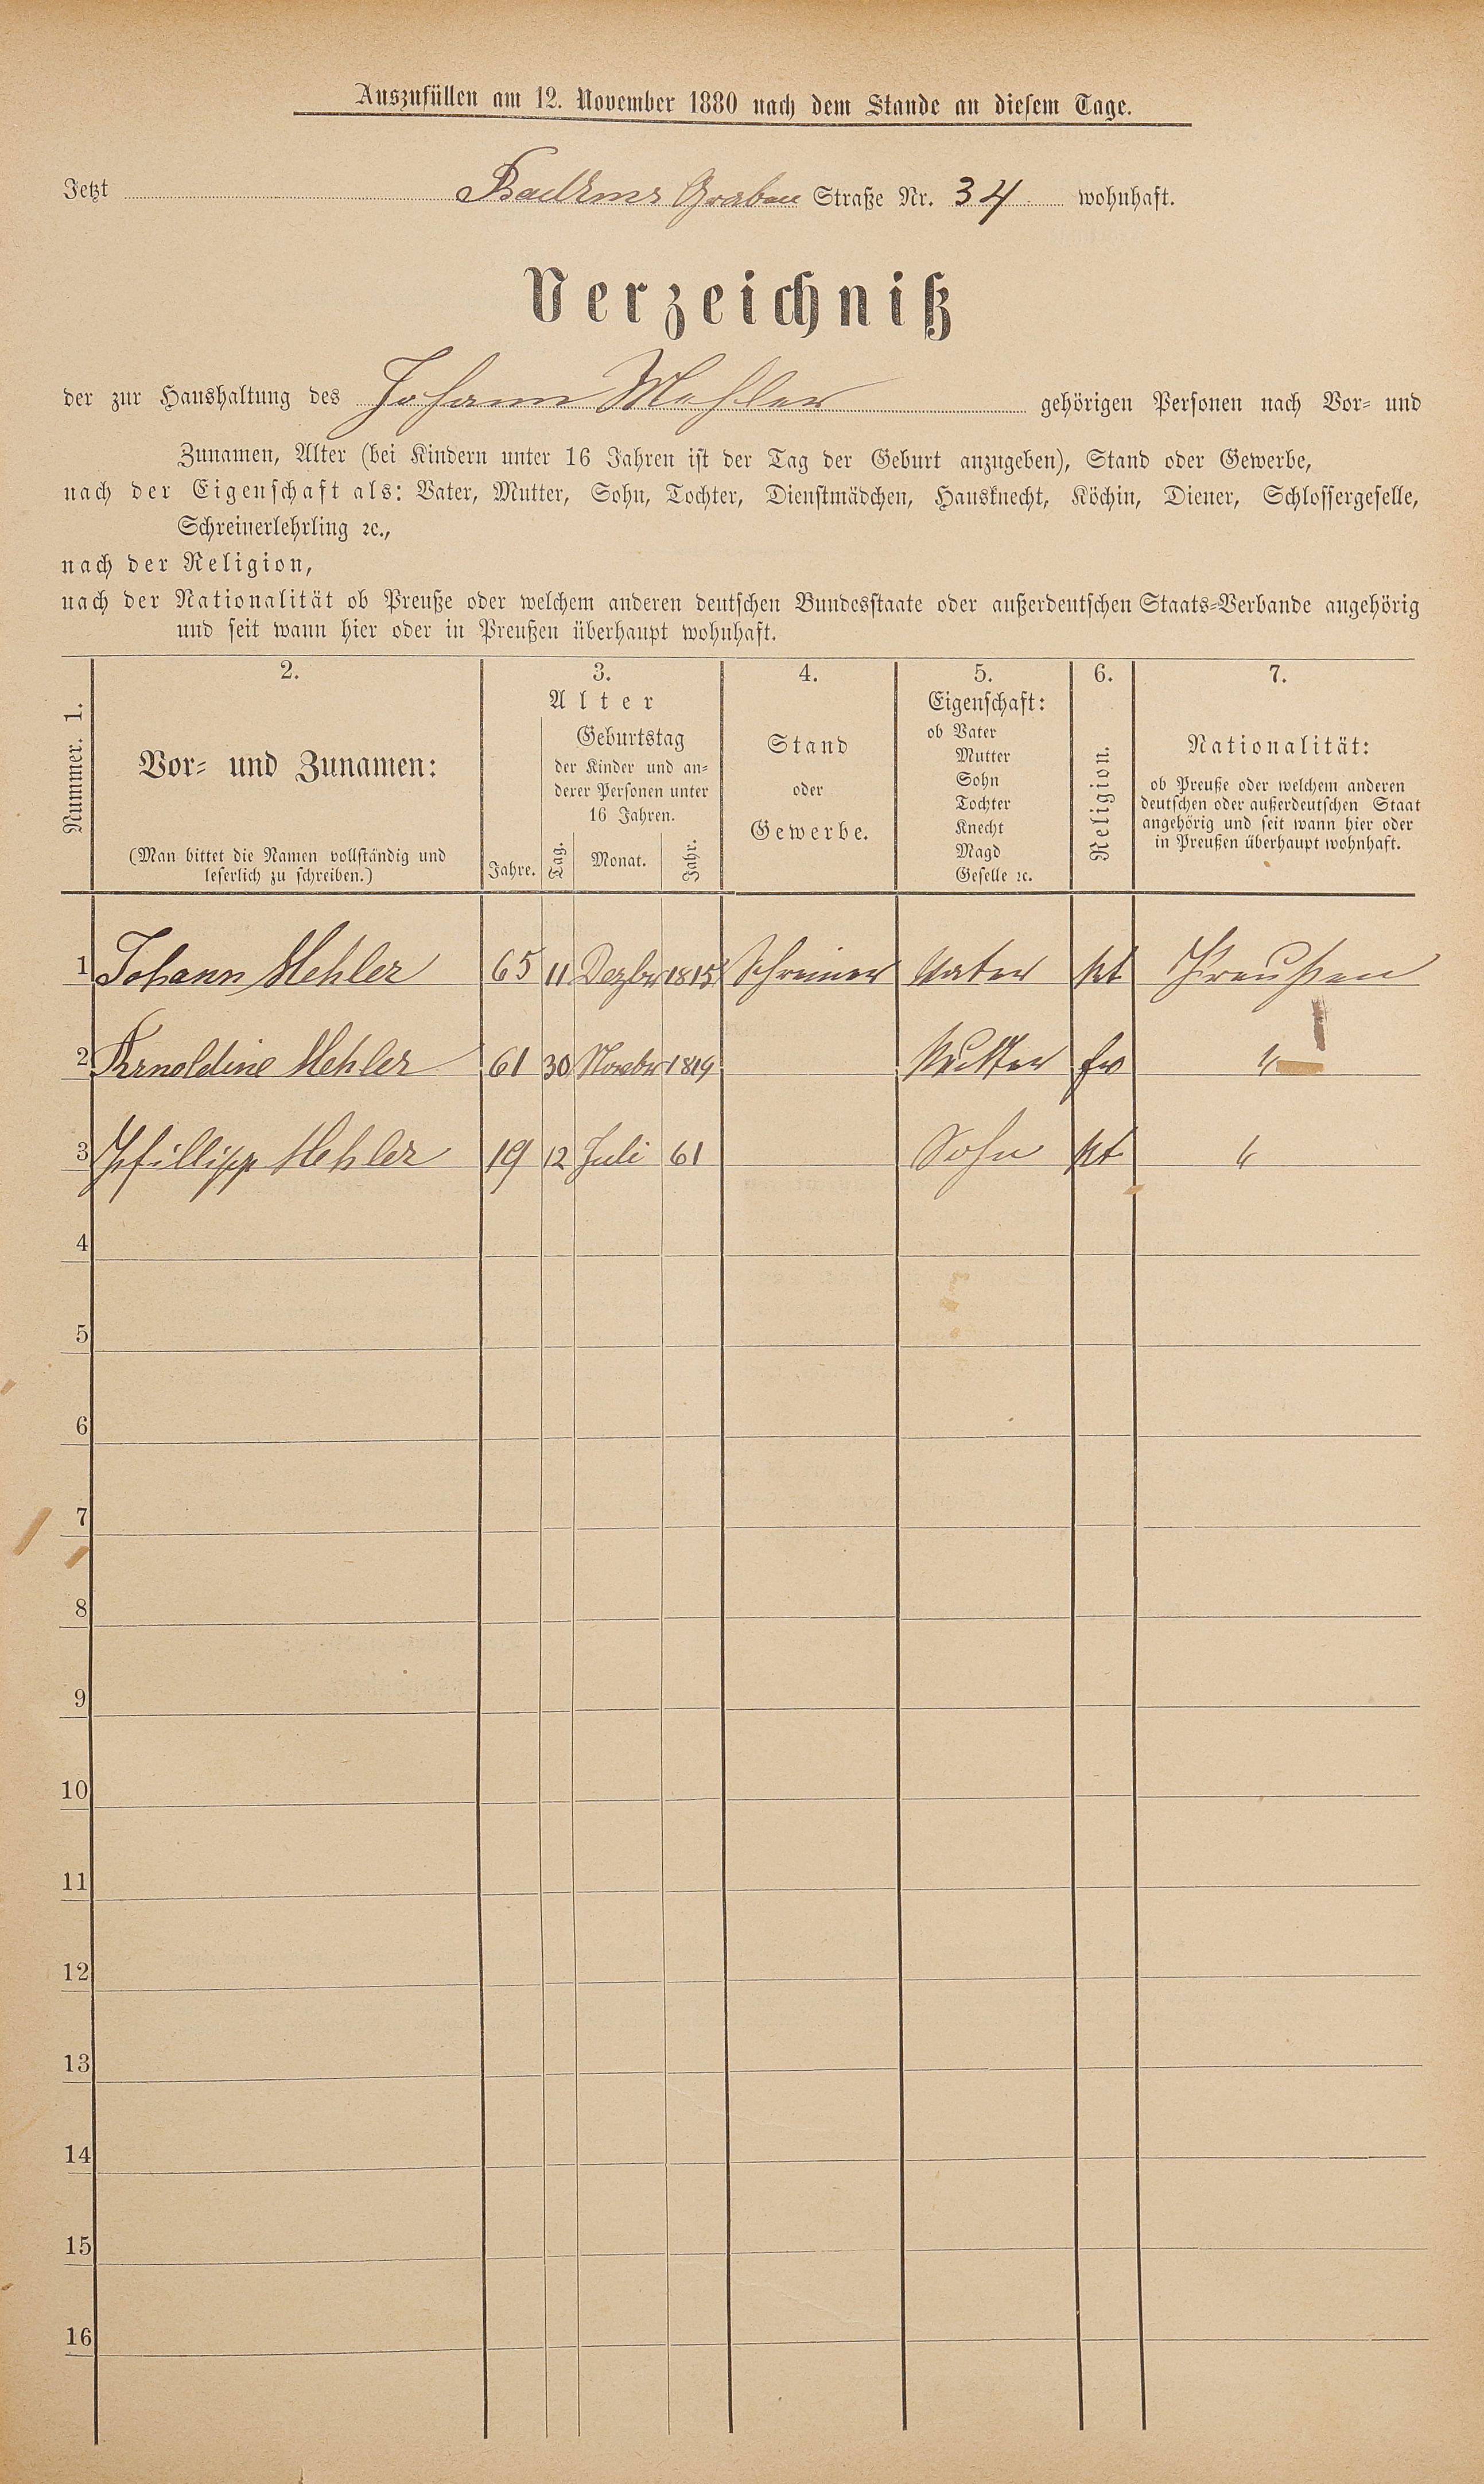 Auszufüllen am 12. November 1880 nach dem Stande an diesem Tage.
Jetzt Graben Straße Nr. 34 wohnhaft.
Verzeichniß
der zur Haushaltung des Johann Mehler gehörigen Personen nach Vor- und
Zunamen, Alter (bei Kindern unter 16 Jahren ist der Tag der Geburt anzugeben), Stand oder Gewerbe,
nach der Eigenschaft als: Vater, Mutter, Sohn, Tochter, Dienstmädchen, Hausknecht, Köchin, Diener, Schlossergeselle,
Schreinerlehrling ꝛc.,
nach der Religion,
nach der Nationalität ob Preuße oder welchem anderen deutschen Bundesstaate oder außerdeutschen Staats-Verbande angehörig
und seit wann hier oder in Preußen überhaupt wohnhaft.
Nummer. 1.
2.
Vor- und Zunamen:
(Man bittet die Namen vollständig und
leserlich zu schreiben.)
3.
Alter
Jahre.
Geburtstag
der Kinder und an-
derer Personen unter
16 Jahren.
Tag. Monat. Jahr.
4.
Stand
oder
Gewerbe.
5.
Eigenschaft:
ob Vater
Mutter
Sohn
Tochter
Knecht
Magd
Geselle ꝛc.
6.
Religion.
7.
Nationalität:
ob Preuße oder welchem anderen
deutschen oder außerdeutschen Staat
angehörig und seit wann hier oder
in Preußen überhaupt wohnhaft.
1 Johann Mehler 65 11 Dezbr 1815 Schreiner Vater kt Preußen
2 Arnoldine Mehler 61 30 Novebr 1819 Mutter "
3 Phillipp Mehler 19 12 Juli 61 Sohn kt "
4
5
6
7
8
9
10
11
12
13
14
15
16